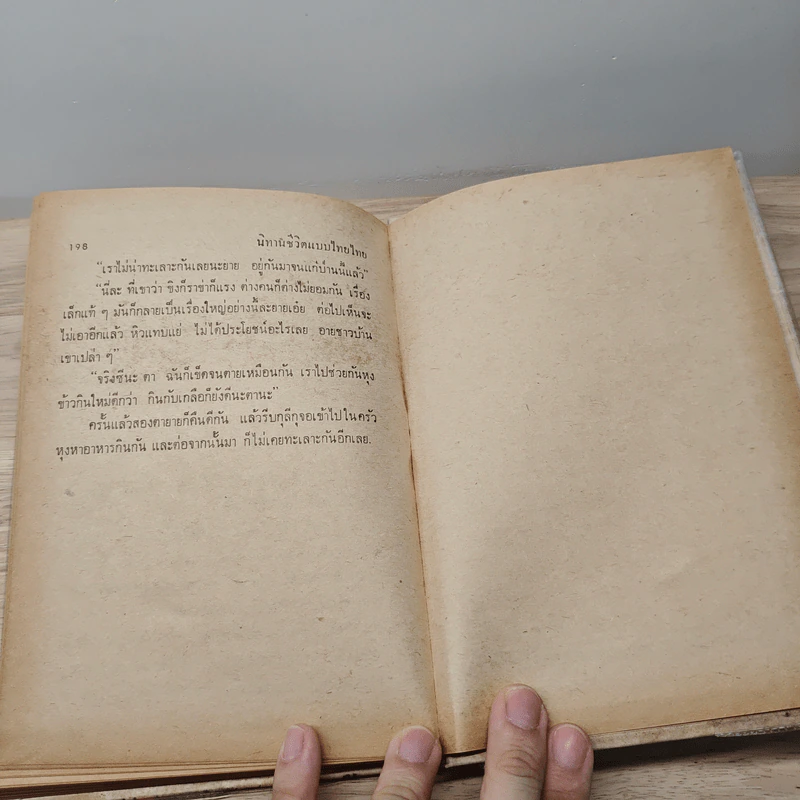 198 นิทานชีวิตแบบไทยไทย
“เราไม่น่าทะเลาะกันเลยนะยาย อยู่กันมาจนแก่ป่านนี้แล้ว”
“นี่ละ ที่เขาว่า ขิงก็ราข่าก็แรง ต่างคนก็ต่างไม่ยอมกัน เรื่อง
เล็กแท้ ๆ มันก็กลายเป็นเรื่องใหญ่อย่างนี้ละยายเอ๋ย ต่อไปเห็นจะ
ไม่เอาอีกแล้ว หิวแทบแย่ ไม่ได้ประโยชน์อะไรเลย อายชาวบ้าน
เขาเปล่า ๆ”
“จริงซีนะ ตา ฉันก็เข็ดจนตายเหมือนกัน เราไปช่วยกันหุง
ข้าวกินใหม่ดีกว่า กินกับเกลือก็ยังดีนะตานะ”
ครั้นแล้วสองตายายก็คืนดีกัน แล้วรีบกุลีกุจอเข้าไปในครัว
หุงหาอาหารกินกัน และต่อจากนั้นมา ก็ไม่เคยทะเลาะกันอีกเลย.